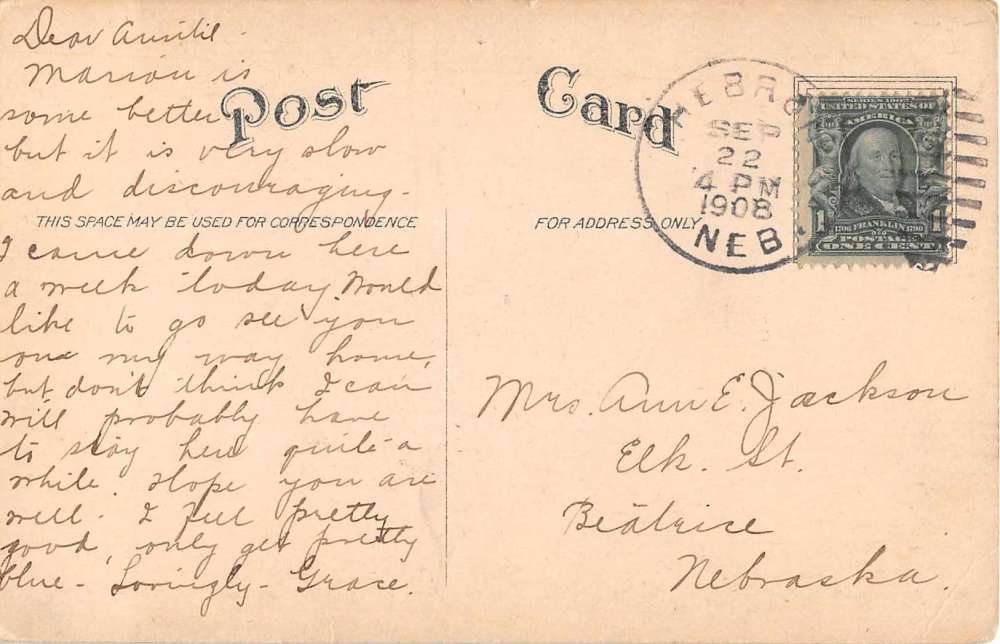 Dear Auntie -
Marion is
some better
but it is very slow
and discouraging -
I came down here
a week today. Would
like to go see you
on my way home,
but don't think I can
will probably have
to stay here quite a
while. Hope you are
well - I feel pretty
good, only get pretty
blue - Lovingly - Grace.
Post Card
THIS SPACE MAY BE USED FOR CORRESPONDENCE
FOR ADDRESS ONLY
HEBRO
SEP
22
4 PM
1908
NEB.
SERIES 1902
UNITED STATES OF
AMERICA
1706 FRANKLIN 1790
POSTAGE
1 1
ONE CENT
Mrs. Ann E. Jackson
Elk. St.
Beatrice
Nebraska.